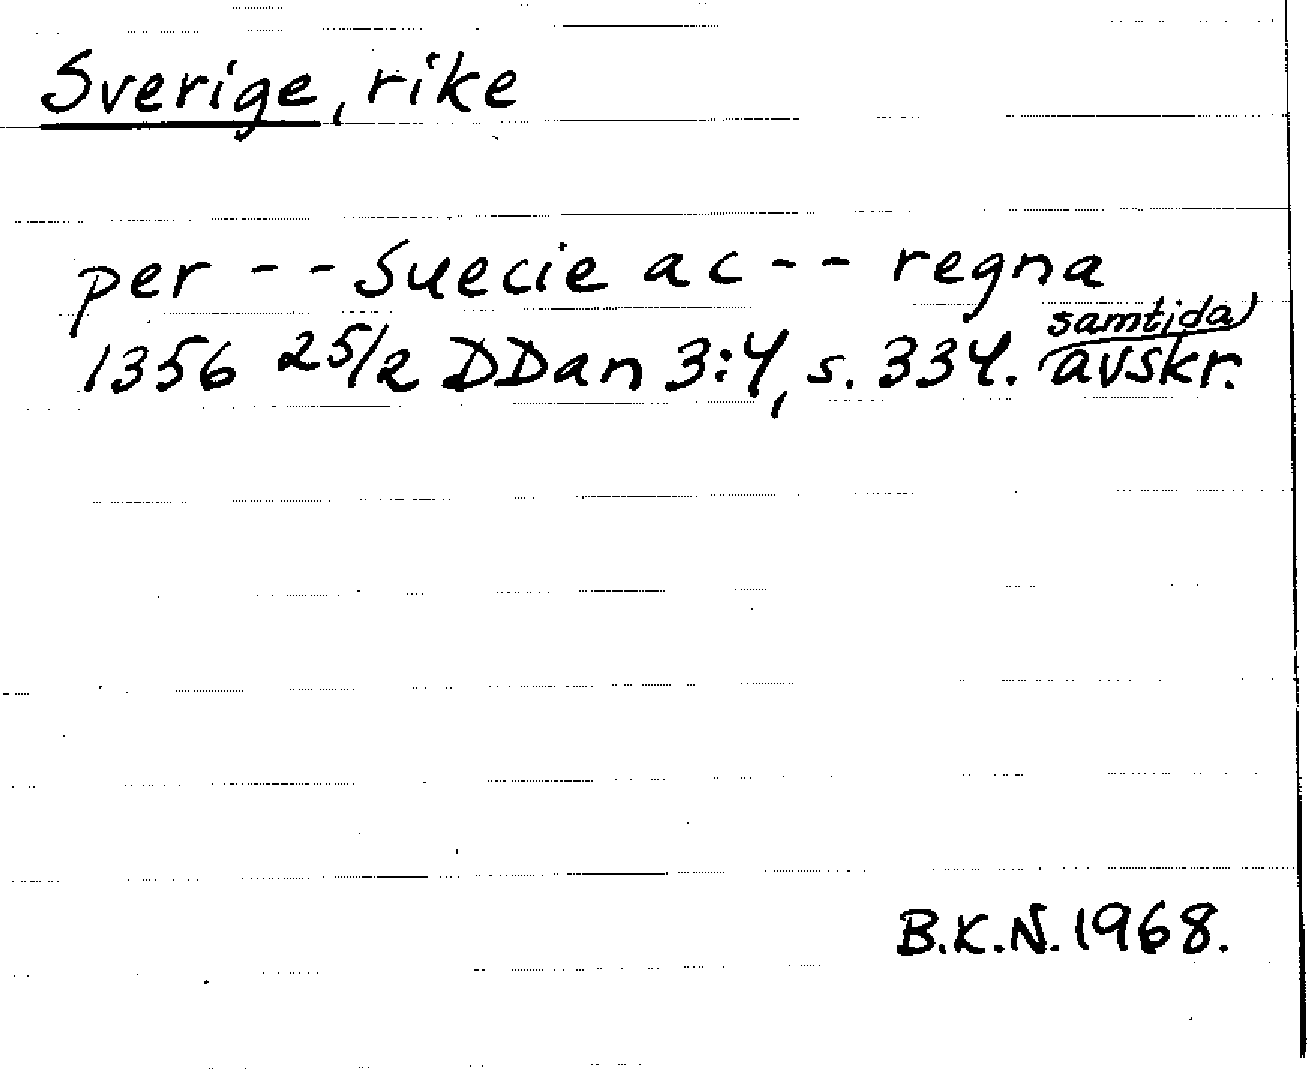 Sverige, rike
per - - Suecie ac - - regna
1356 25/2 DDan 3:4, s. 334. samtida avskr.
B.K.N. 1968.